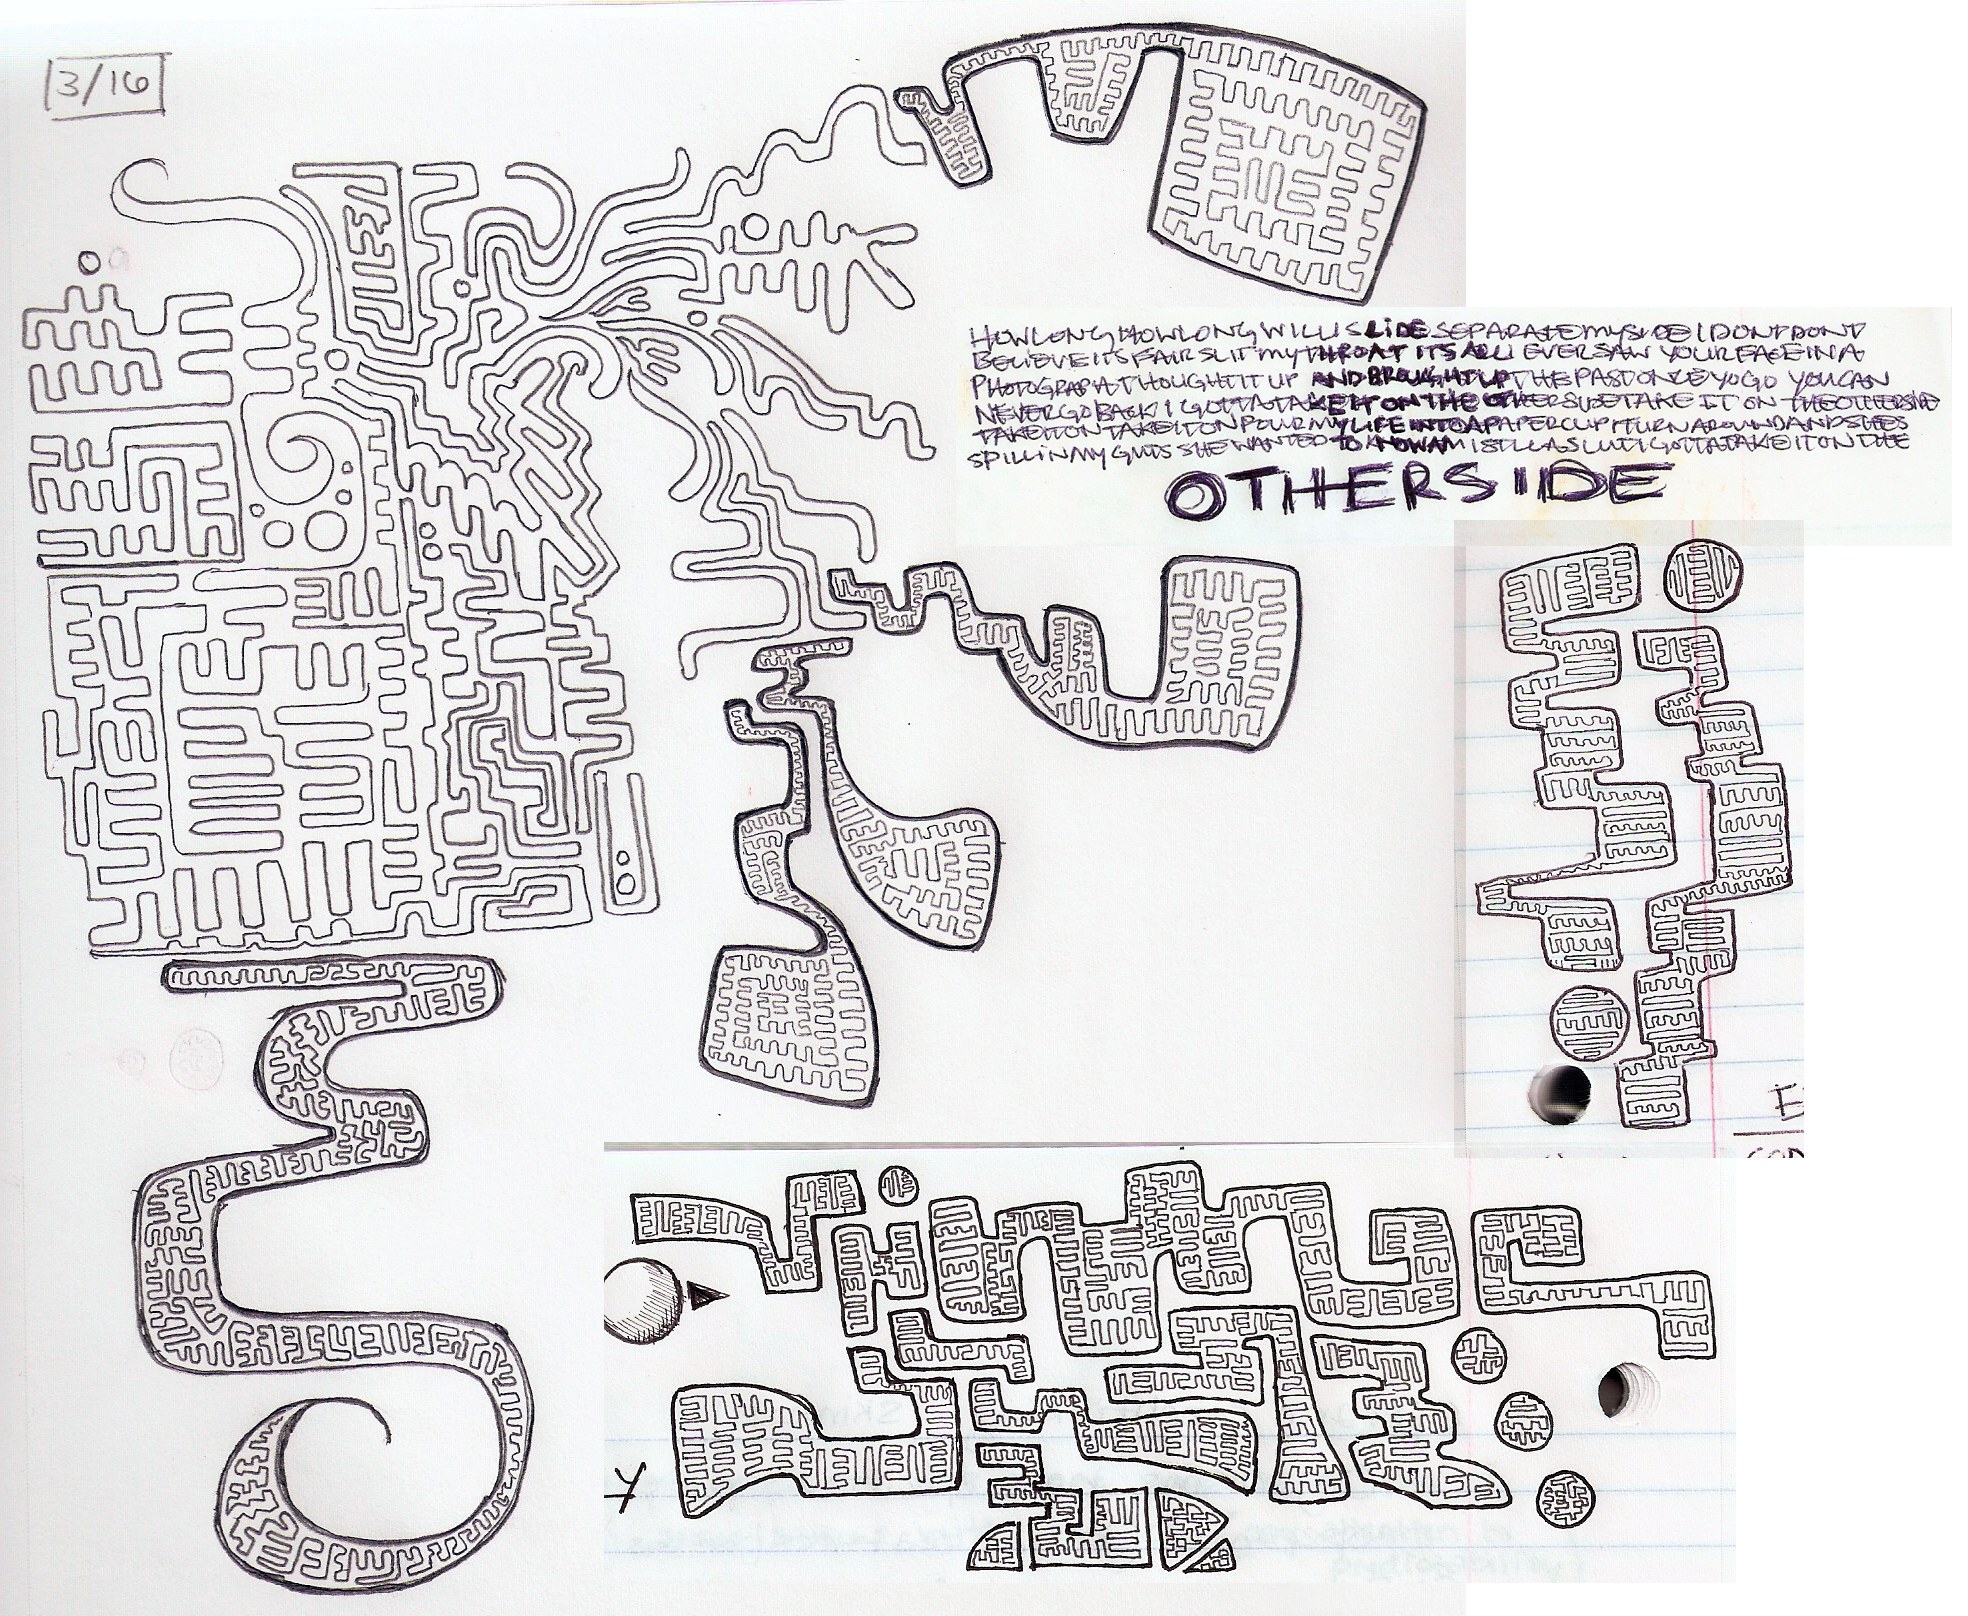 3/16
HOWLONGHOWLONGWILLISLIDESEPARATEMYSIDEIDONTDONT
BELIEVEITSFAIRSLITMYTHROATITSALLIEVERSAWYOURFACEINA
PHOTOGRAPHTHOUGHTITUPANDBROUGHTUPTHEPASTONCEYOGOYOUCAN
NEVERGOBACKIGOTTATAKEITONTHEOTHERSIDETAKEITONTHEOTHERSIDE
TAKEITONTAKEITONPOURMYLIFEINTOAPAPERCUPITURNAROUNDANDSHES
SPILLINMYGUTSSHEWANTEDTOKNOWAMISTILLASLUTIGOTTATAKEITONTHE
OTHERSIDE
Y